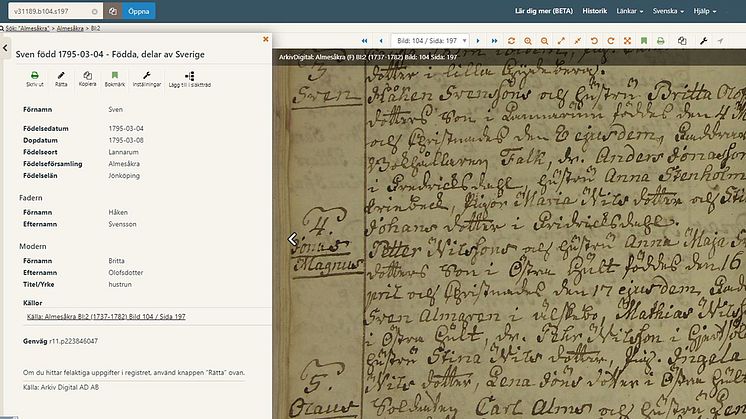 v31189.b104.s197
Öppna
Lär dig mer (BETA)
Historik
Länkar
Svenska
Hjälp
Sök: "Almesåkra" > Almesåkra > BI:2
Bild: 104 / Sida: 197
Sven född 1795-03-04 - Födda, delar av Sverige
Skriv ut
Rätta
Kopiera
Bokmärk
Inställningar
Lägg till i släktträd
Förnamn Sven
Födelsedatum 1795-03-04
Dopdatum 1795-03-08
Födelseort Lannarum
Födelseförsamling Almesåkra
Födelselän Jönköping
Fadern
Förnamn Håken
Efternamn Svensson
Modern
Förnamn Britta
Efternamn Olofsdotter
Titel/Yrke hustrun
Källor
Källa: Almesåkra BI:2 (1737-1782) Bild 104 / Sida 197
Genväg r11.p223846047
Om du hittar felaktiga uppgifter i registret, använd knappen "Rätta" ovan.
Källa: Arkiv Digital AD AB
ArkivDigital: Almesåkra (F) BI:2 (1737-1782) Bild: 104 Sida: 197
dotter i lilla
3
Sven
Håken Svenssons och hustru Britta Olofs
dotters son i Lannarum föddes den 4
och Christnades den 8 ejusdem,
Bokhållaren Falk, dr. Anders Jonasson
i Fredricksdahl, hustru Anna Stenholm
Pigor Maria Nils dotter och
Johans dotter i Fridricksdahl.
4.
Jonas
Magnus
Petter Nilssons och hustru Anna Maja
dotters Son i Östra Hult föddes den 16
april och Christnades den 17 ejusdem,
Sven Almgren i Mathias Nils
i Östra Hult, dr. Pehr Nilsson i
hustru Stina Nils dotter, Ingela
Nils dotter, Lena Jöns dotter i Östra Hult
5.
Olaus
Soldaten Carl Alms och hustru